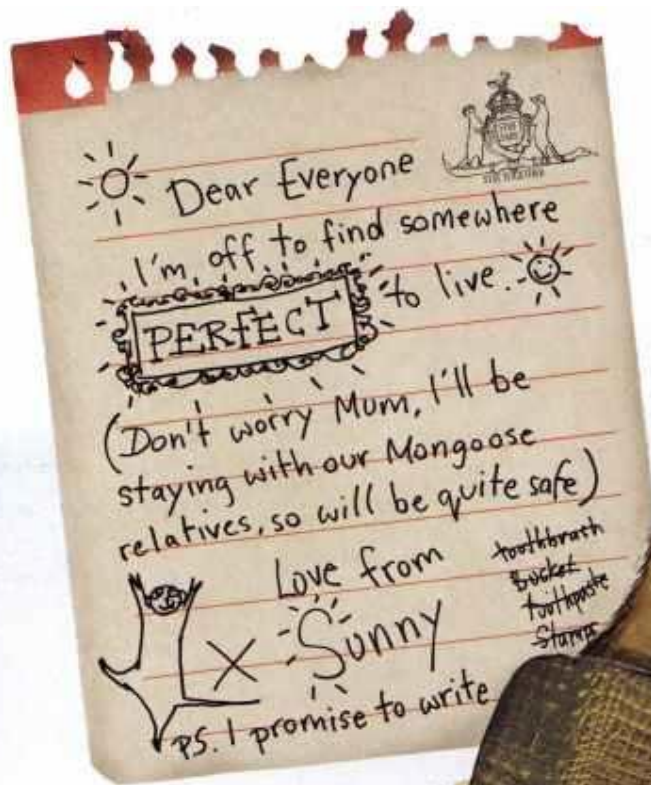 Dear Everyone
I'm off to find somewhere
PERFECT to live.
(Don't worry Mum, I'll be
staying with our Mongoose
relatives, so will be quite safe)
Love from
Sunny
X
toothbrush
Bucket
toothpaste
Stamps
PS. I promise to write